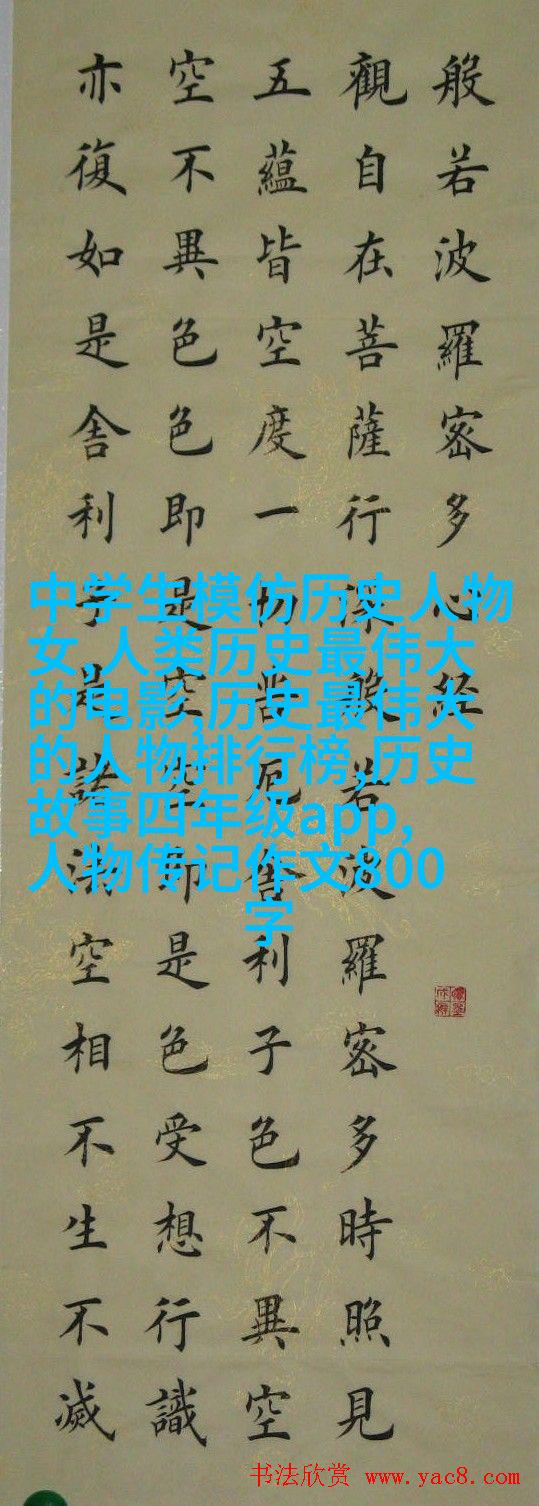 般若波羅密多心經
觀自在菩薩行深般若波羅密多時照見
五蘊皆空度一切苦厄舍利子色不異空
空不異色色即是空空即是色受想行識
亦復如是舍利子是諸法空相不生不滅
中学生模仿历史人物
女,人类历史最伟大
的电影,历史最伟大
的人物排行榜,历史
故事四年级app,
人物传记作文800
字
书法欣赏 www.yac8.com